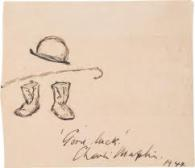 'Good luck'
Charlie Chaplin.
1944